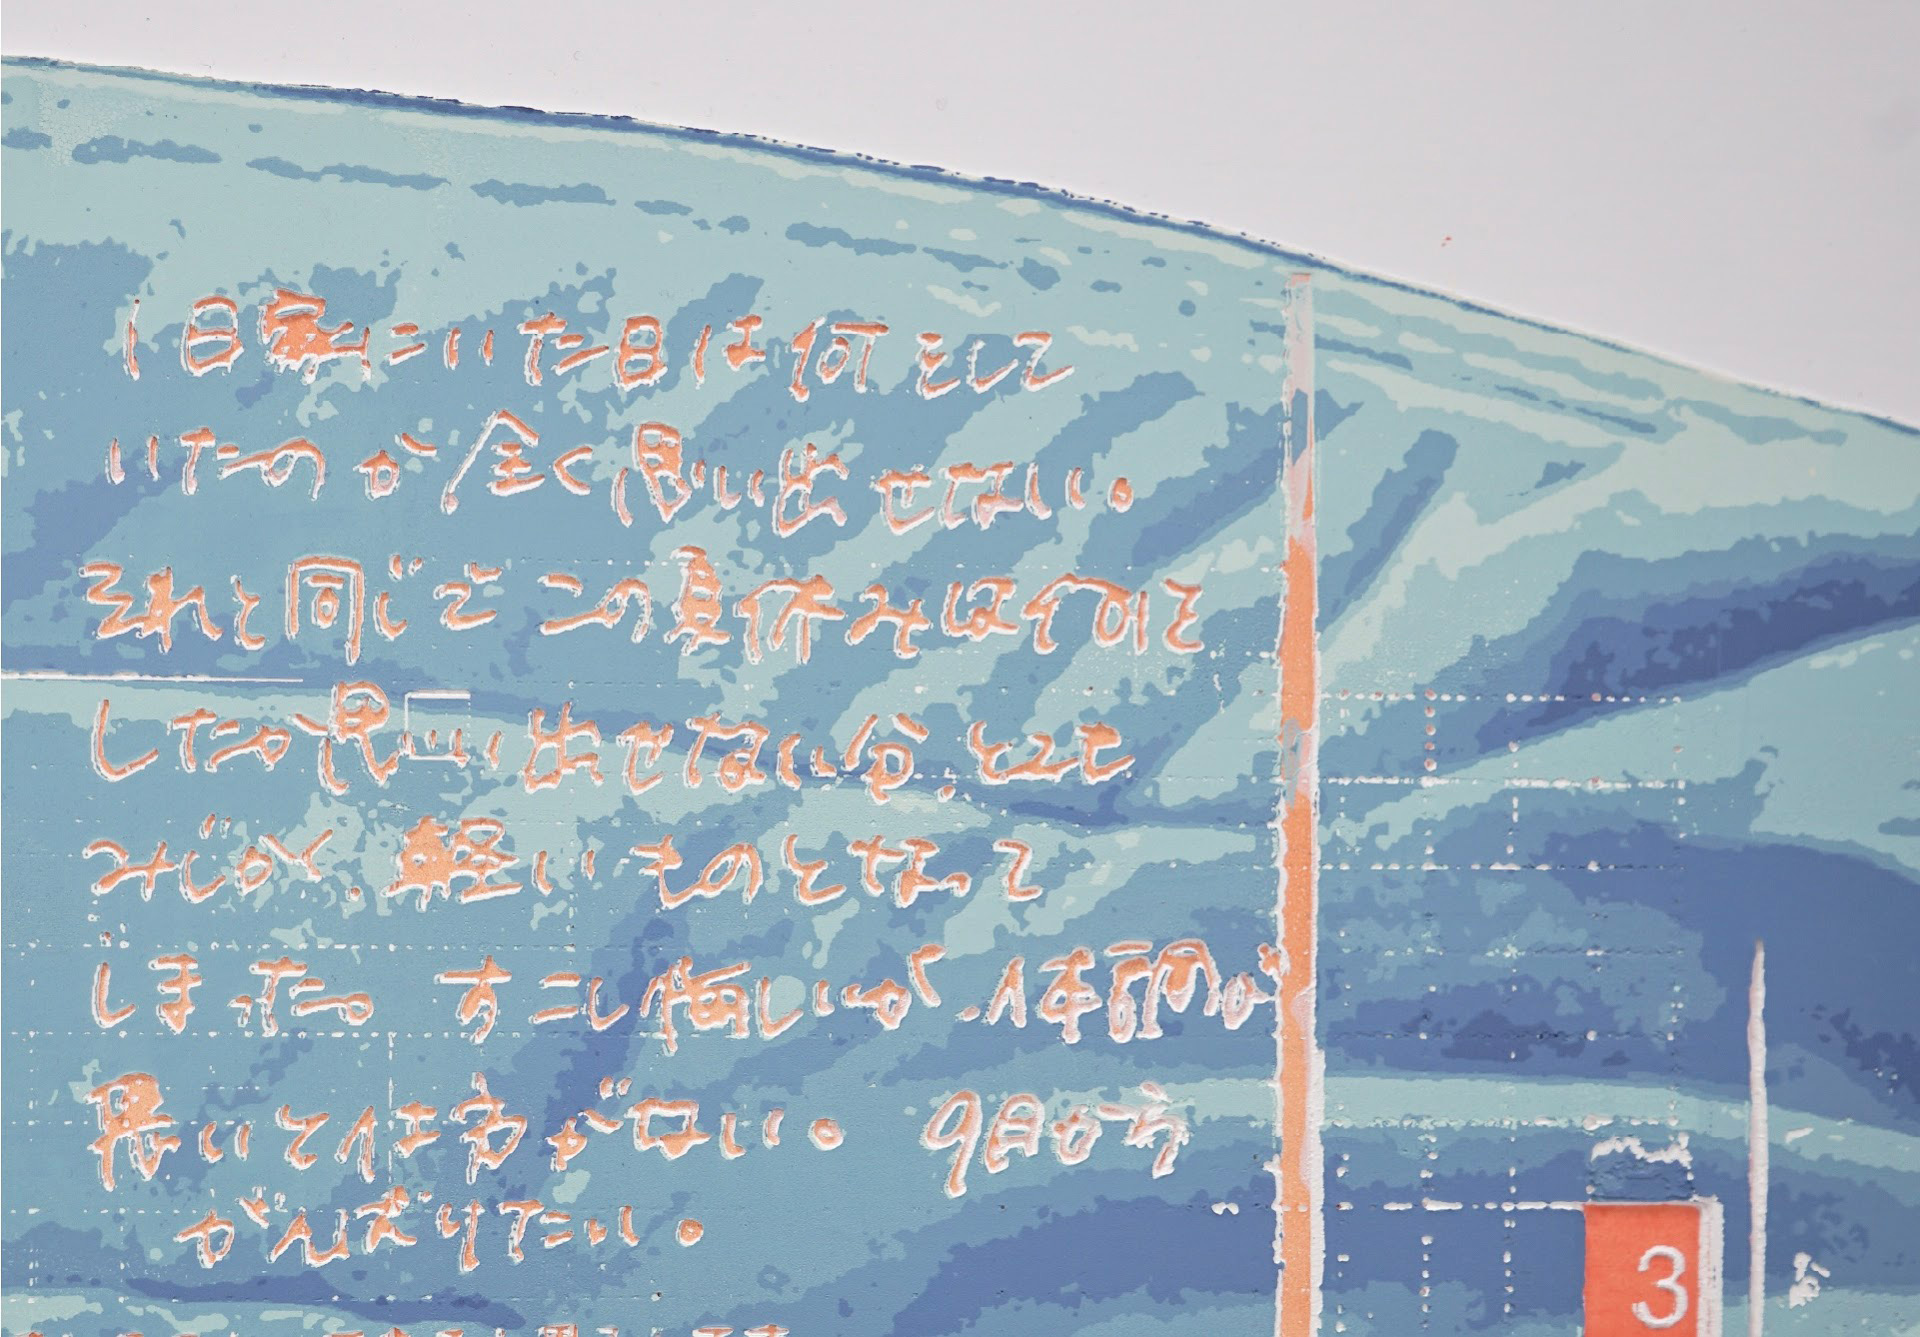 1日家にいた日は何をして
いたのか全く思い出せない。
それと同じでこの夏休みは何を
したか思い出せない分、とても
みじかく、軽いものとなって
しまった。すこし悔しいが、1年間が
長いと仕方がない。9月から
がんばりたい。
3